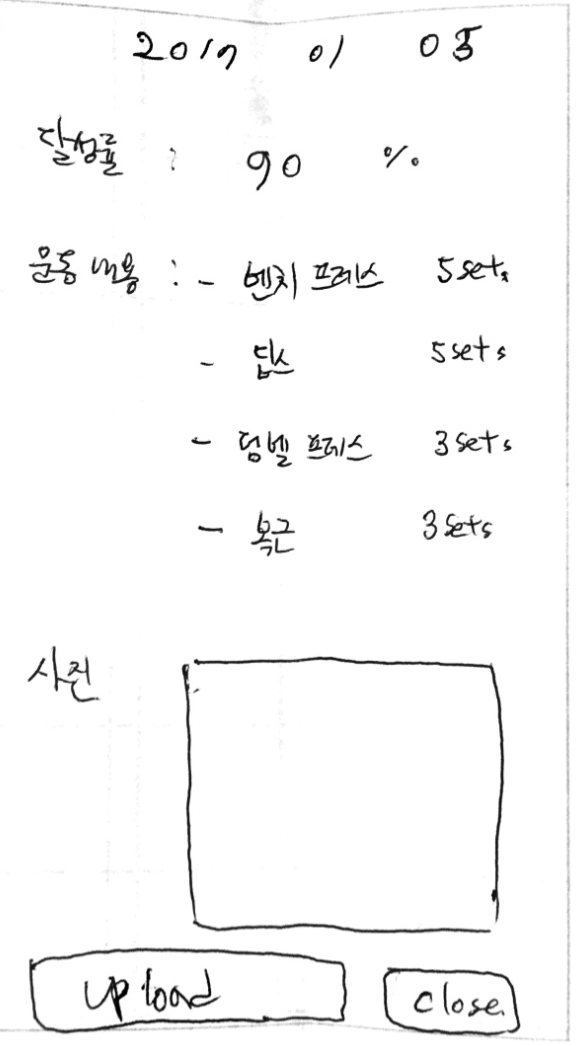 2017 01 05
달성률 : 90 %
운동 내용 : - 벤치 프레스 5sets
- 딥스 5sets
- 덤벨 프레스 3sets
- 복근 3sets
사진
upload
close